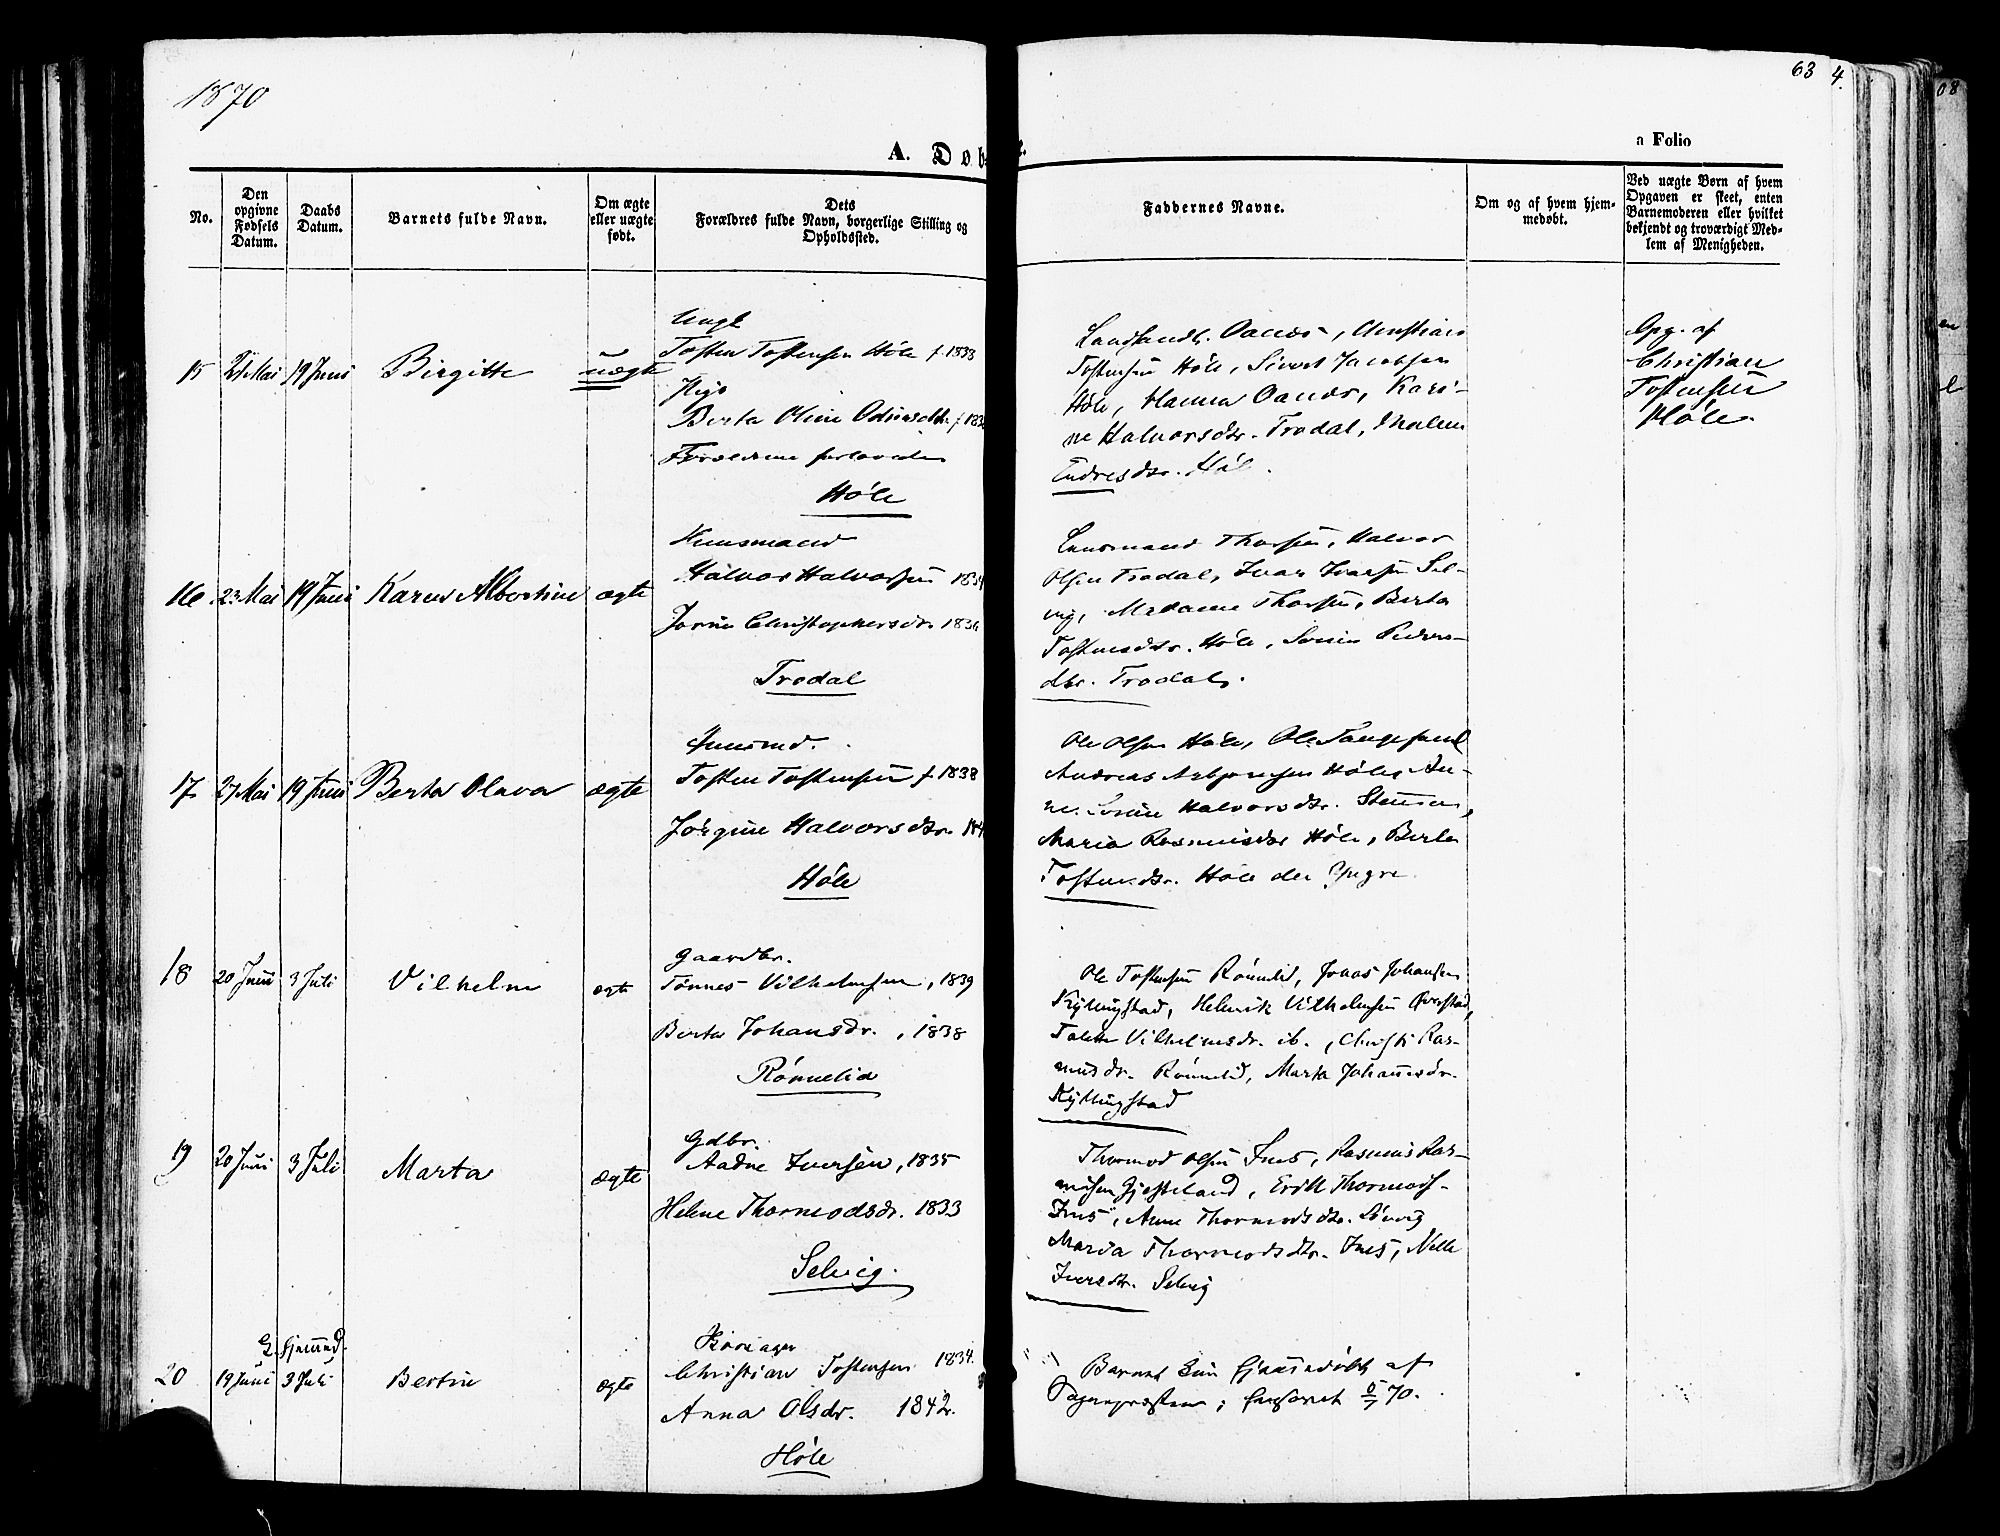 1870
63
4.
A. Døb
a Folio
No.
Den opgivne Fødsels Datum.
Daabs Datum.
Barnets fulde Navn.
Om ægte eller uægte født.
Dets Forældres fulde Navn, borgerlige Stilling og Opholdssted.
Faddernes Navne.
Om og af hvem hjemmedøbt.
Ved uægte Børn af hvem Opgaven er skeet, enten Barnemoderen eller hvilket bekjendt og troværdigt Medlem af Menigheden.
15 21 Mai 19 Juni Birgitte uægte
Ungk
Tosten Tostensen Høle f. 1833
Pige
Berta Oline
Forældrene forlovede
Høle
Oanes, Christian
Tostensen Høle, Sivert Jacobsen
Høle, Hanna Oanes, Kari-
ne Halvorsdtr. Trodal, Malene
Endresdtr. Høl.
Opg. af
Christian
Tostensen
Høle.
16 23 Mai 19 Juni Karen Albertine ægte
Huusmand
Halvor Halvorsen 1834
Christophersdr. 1836
Trodal
Lensmand Thorsen, Halvor
Olsen Trodal, Ivar Ivarsen Sel-
vig, Madame Thorsen, Berta
Tostensdtr. Høle, Peders-
dtr. Trodal.
17 27 Mai 19 Juni Berta Olava ægte
Huusmd.
Tosten Tostensen f. 1838
Jørgine Halvorsdtr. 184
Høle
Ole Olsen Høle, Ole
Andreas Asbjørnsen Høle, An-
ne Halvorsdtr.
Maria Rasmusdtr Høle, Berta
Tostensdtr. Høle den Yngre.
18 20 Juni 3 Juli Vilhelm ægte
Gaardbr.
Tønnes Vilhelmsen, 1839
Berta Johansdr., 1838
Rønnelid
Ole Tostensen Rønnelid, Jonas Johansen
Kyllingstad, Helmik Vilhelmsen
Vilhelmsdr. ib., Christi Ras-
musdr. Rønnelid, Marta Johannesdr.
Kyllingstad
19 20 Juni 3 Juli Marta ægte
Gdbr.
Aadne Iversen, 1835
Helene Thormodsdr. 1833
Selvig.
Thormod Olsen Ims, Rasmus Ras-
musen Gjesteland, Erik Thormods-
Ims, Anne Thormodsdtr.
Marta Thormodsdtr. Ims, Nille
Iversdtr. Selvig
20 19 Juni 3 Juli Bertine ægte
Christian Tostensen 1834.
Anna Olsdr. 1842.
Høle
Barnet hjemmedøbt af
Sognepræsten;